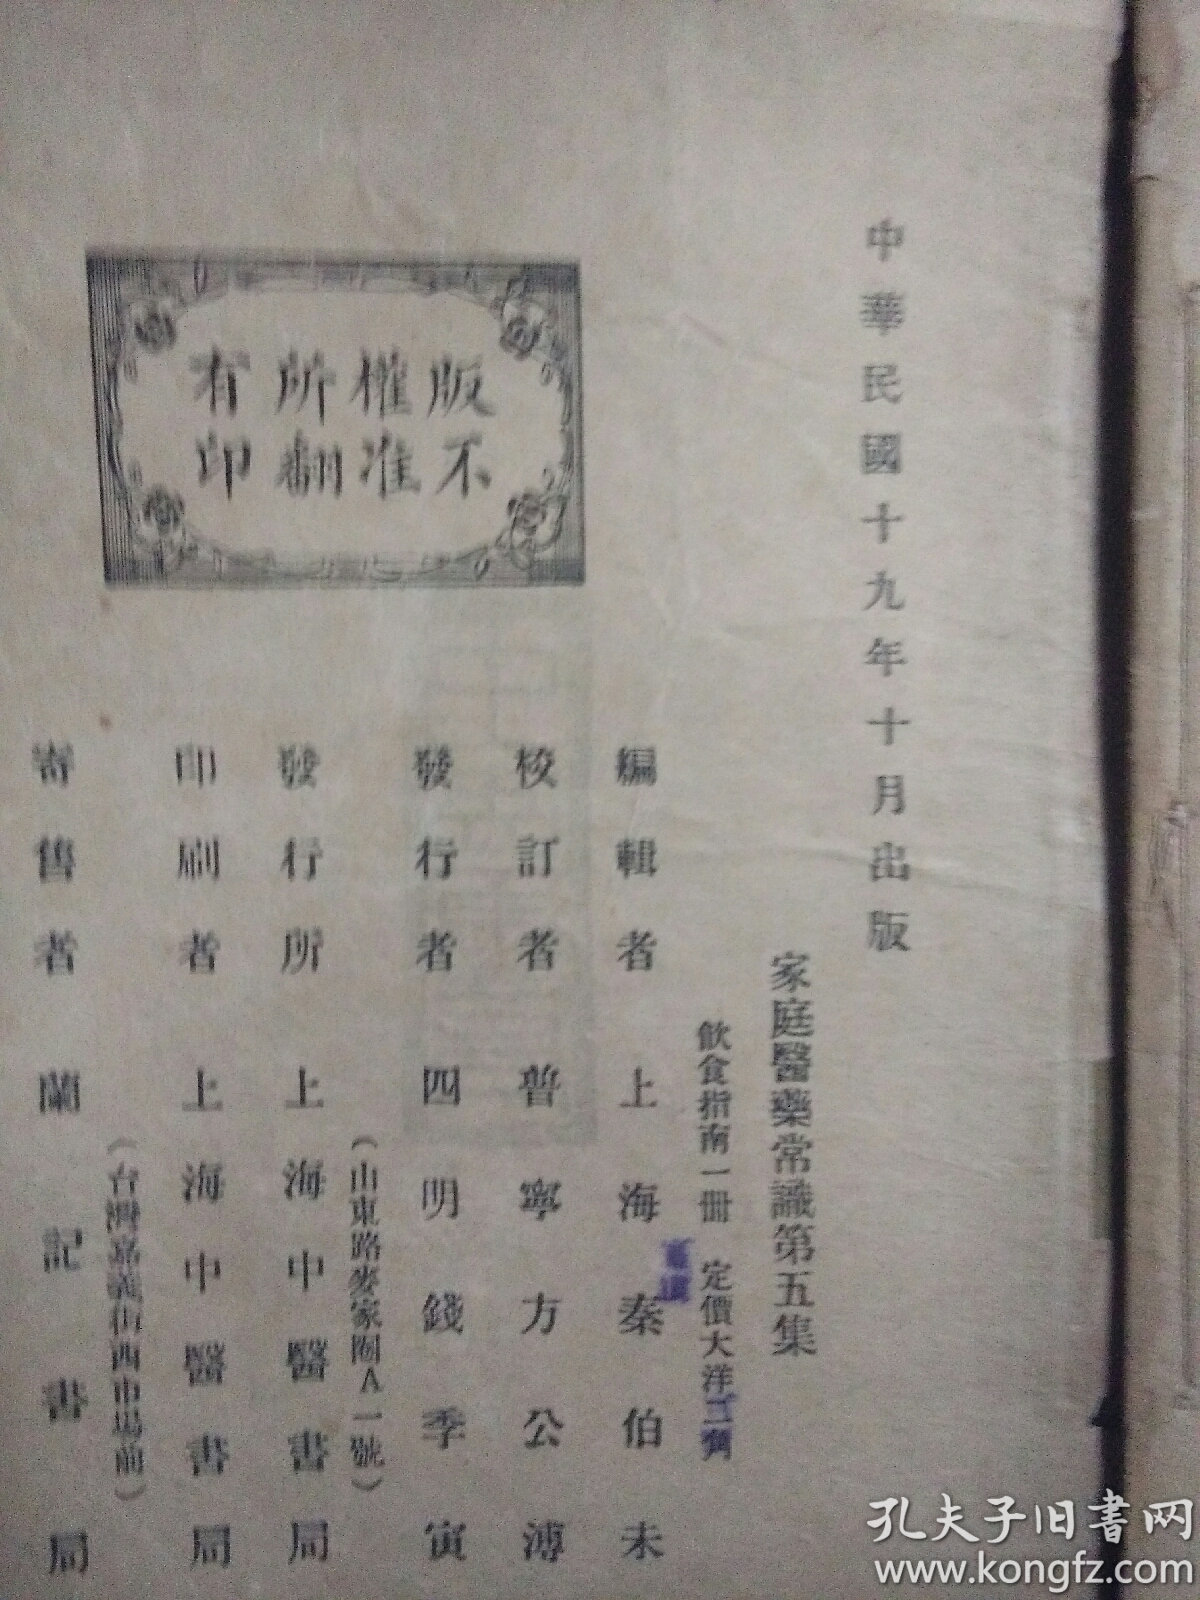 中華民國十九年十月出版
家庭醫藥常識第五集
飲食指南一冊 定價大洋
編輯者 上海秦伯未
校訂者 普寧方公溥
發行者 四明錢季寅
(山東路麥家圈A一號)
發行所 上海中醫書局
印刷者 上海中醫書局
(台灣嘉義街西市場前)
寄售者 蘭記書局
版權所有
不准翻印
孔夫子旧书网
www.kongfz.com